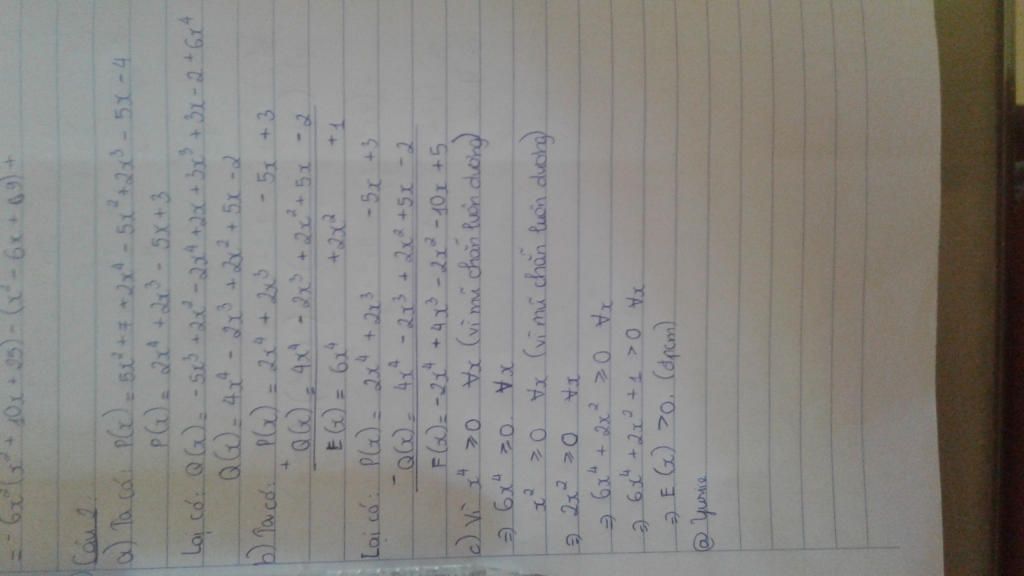 = - 6x²(x² + 10x + 25) - (x² - 6x + 69) +
Câu 2:
a) Ta có: P(x) = 5x² + 7 + 2x⁴ - 5x² + 2x³ - 5x - 4
P(x) = 2x⁴ + 2x³ - 5x + 3
Lại có: Q(x) = - 5x³ + 2x² - 2x⁴ + 2x + 3x³ + 3x - 2 + 6x⁴
Q(x) = 4x⁴ - 2x³ + 2x² + 5x - 2
b) Ta có: P(x) = 2x⁴ + 2x³ - 5x + 3
+ Q(x) = 4x⁴ - 2x³ + 2x² + 5x - 2
E(x) = 6x⁴ + 2x² + 1
Lại có: P(x) = 2x⁴ + 2x³ - 5x + 3
- Q(x) = 4x⁴ - 2x³ + 2x² + 5x - 2
F(x) = - 2x⁴ + 4x³ - 2x² - 10x + 5
c) Vì x⁴ ≥ 0 ∀x (vì mũ chẵn luôn dương)
⇒ 6x⁴ ≥ 0 ∀x
x² ≥ 0 ∀x (vì mũ chẵn luôn dương)
⇒ 2x² ≥ 0 ∀x
⇒ 6x⁴ + 2x² ≥ 0 ∀x
⇒ 6x⁴ + 2x² + 1 > 0 ∀x
⇒ E(x) > 0. (đpcm)